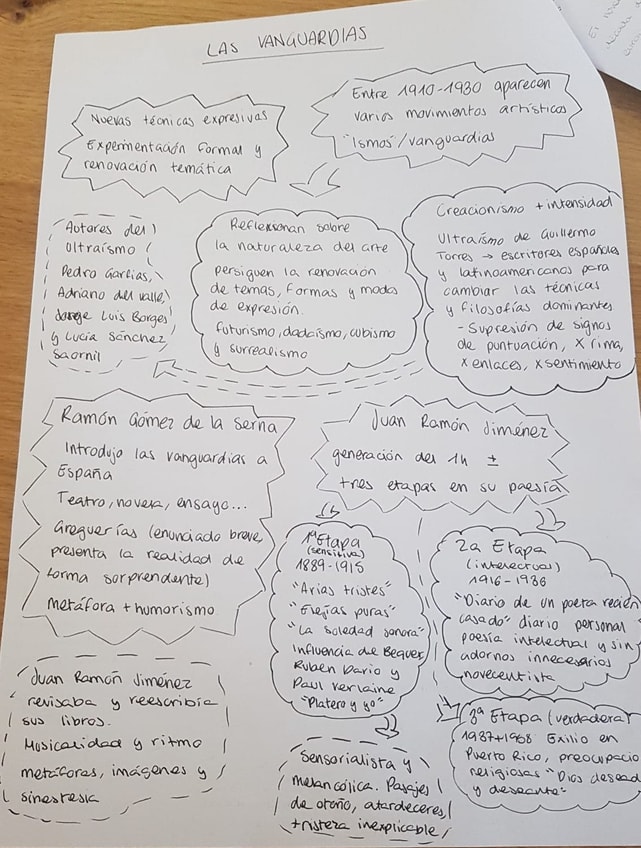 LAS VANGUARDIAS
Nuevas técnicas expresivas
Experimentación formal y
renovación temática
Entre 1910-1930 aparecen
varios movimientos artísticos
"Ismos"/vanguardias
Autores del
Ultraísmo
Pedro Garfias,
Adriano del Valle,
Jorge Luis Borges
y Lucía Sánchez
Saornil
Reflexionan sobre
la naturaleza del arte
persiguen la renovación
de temas, formas y modos
de expresión.
futurismo, dadaísmo, cubismo
y surrealismo
Creacionismo + intensidad
Ultraísmo de Guillermo
Torres → escritores españoles
y latinoamericanos para
cambiar las técnicas
y filosofías dominantes
- Supresión de signos
de puntuación, x rima,
x enlaces, x sentimiento
Ramón Gómez de la Serna
Introdujo las vanguardias a
España
Teatro, novela, ensayo...
Greguerías (enunciado breve,
presenta la realidad de
forma sorprendente)
metáfora + humorismo
Juan Ramón Jiménez
generación del 14 ±
tres etapas en su poesía
1ª Etapa
(sensitiva)
1889-1915
"Arias tristes"
"Elejías puras"
"La soledad sonora"
Influencia de Bequer
Ruben Dario y
Paul Verlaine
"Platero y yo"
2a Etapa
(intelectual)
1916-1936
"Diario de un poeta recién
casado" diario personal
poesía intelectual y sin
adornos innecesarios
novecentista
3ª Etapa (verdadera)
1937+1958 Exilio en
Puerto Rico, preocupacio
religiosas "Dios desead
y deseante"
Juan Ramón Jiménez
revisaba y reescribía
sus libros.
Musicalidad y ritmo
metáforas, imágenes y
sinestesia
Sensorialista y
melancólica. Pasajes
de otoño, atardeceres,
tristeza inexplicable